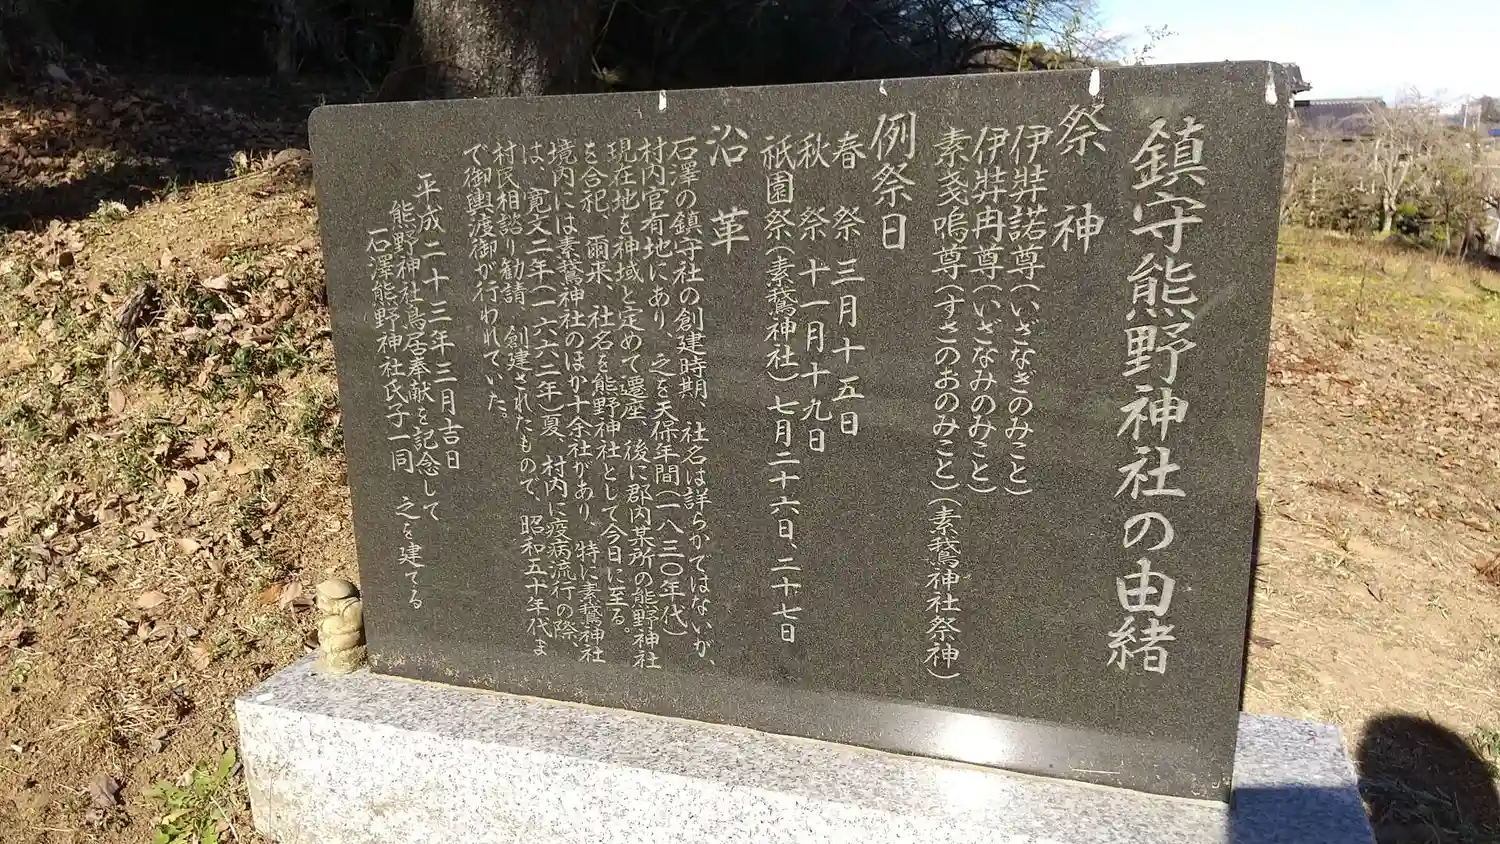 鎮守熊野神社の由緒
祭神
伊弉諾尊(いざなぎのみこと)
伊弉冉尊(いざなみのみこと)
素戔嗚尊(すさのおのみこと)(素鵞神社祭神)
例祭日
春祭 三月十五日
秋祭 十一月十九日
祇園祭(素鵞神社)七月二十六日、二十七日
沿革
石澤の鎮守社の創建時期、社名は詳らかではないが、
村内官有地にあり、之を天保年間(一八三〇年代)
現在地を神域と定めて遷座、後に郡内某所の熊野神社
を合祀、爾来、社名を熊野神社として今日に至る。
境内には素鵞神社のほか十余社があり、特に素鵞神社
は、寛文二年(一六六二年)夏、村内に疫病流行の際、
村民相談り勧請、創建されたもので、昭和五十年代ま
で御輿渡御が行われていた。
平成二十三年三月吉日
熊野神社鳥居奉献を記念して
石澤熊野神社氏子一同 之を建てる